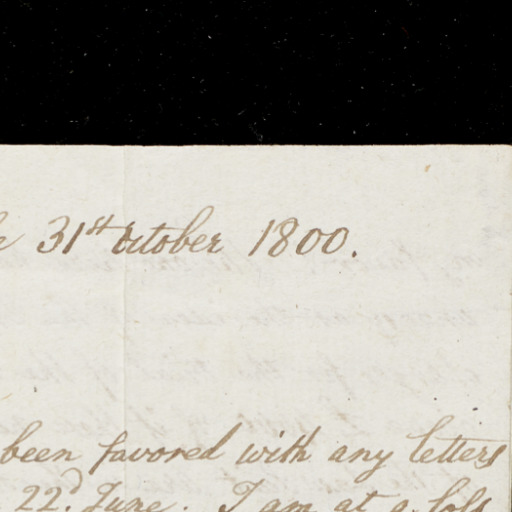 31st October 1800.
been favored with any letters
22d. June. I am at a loss